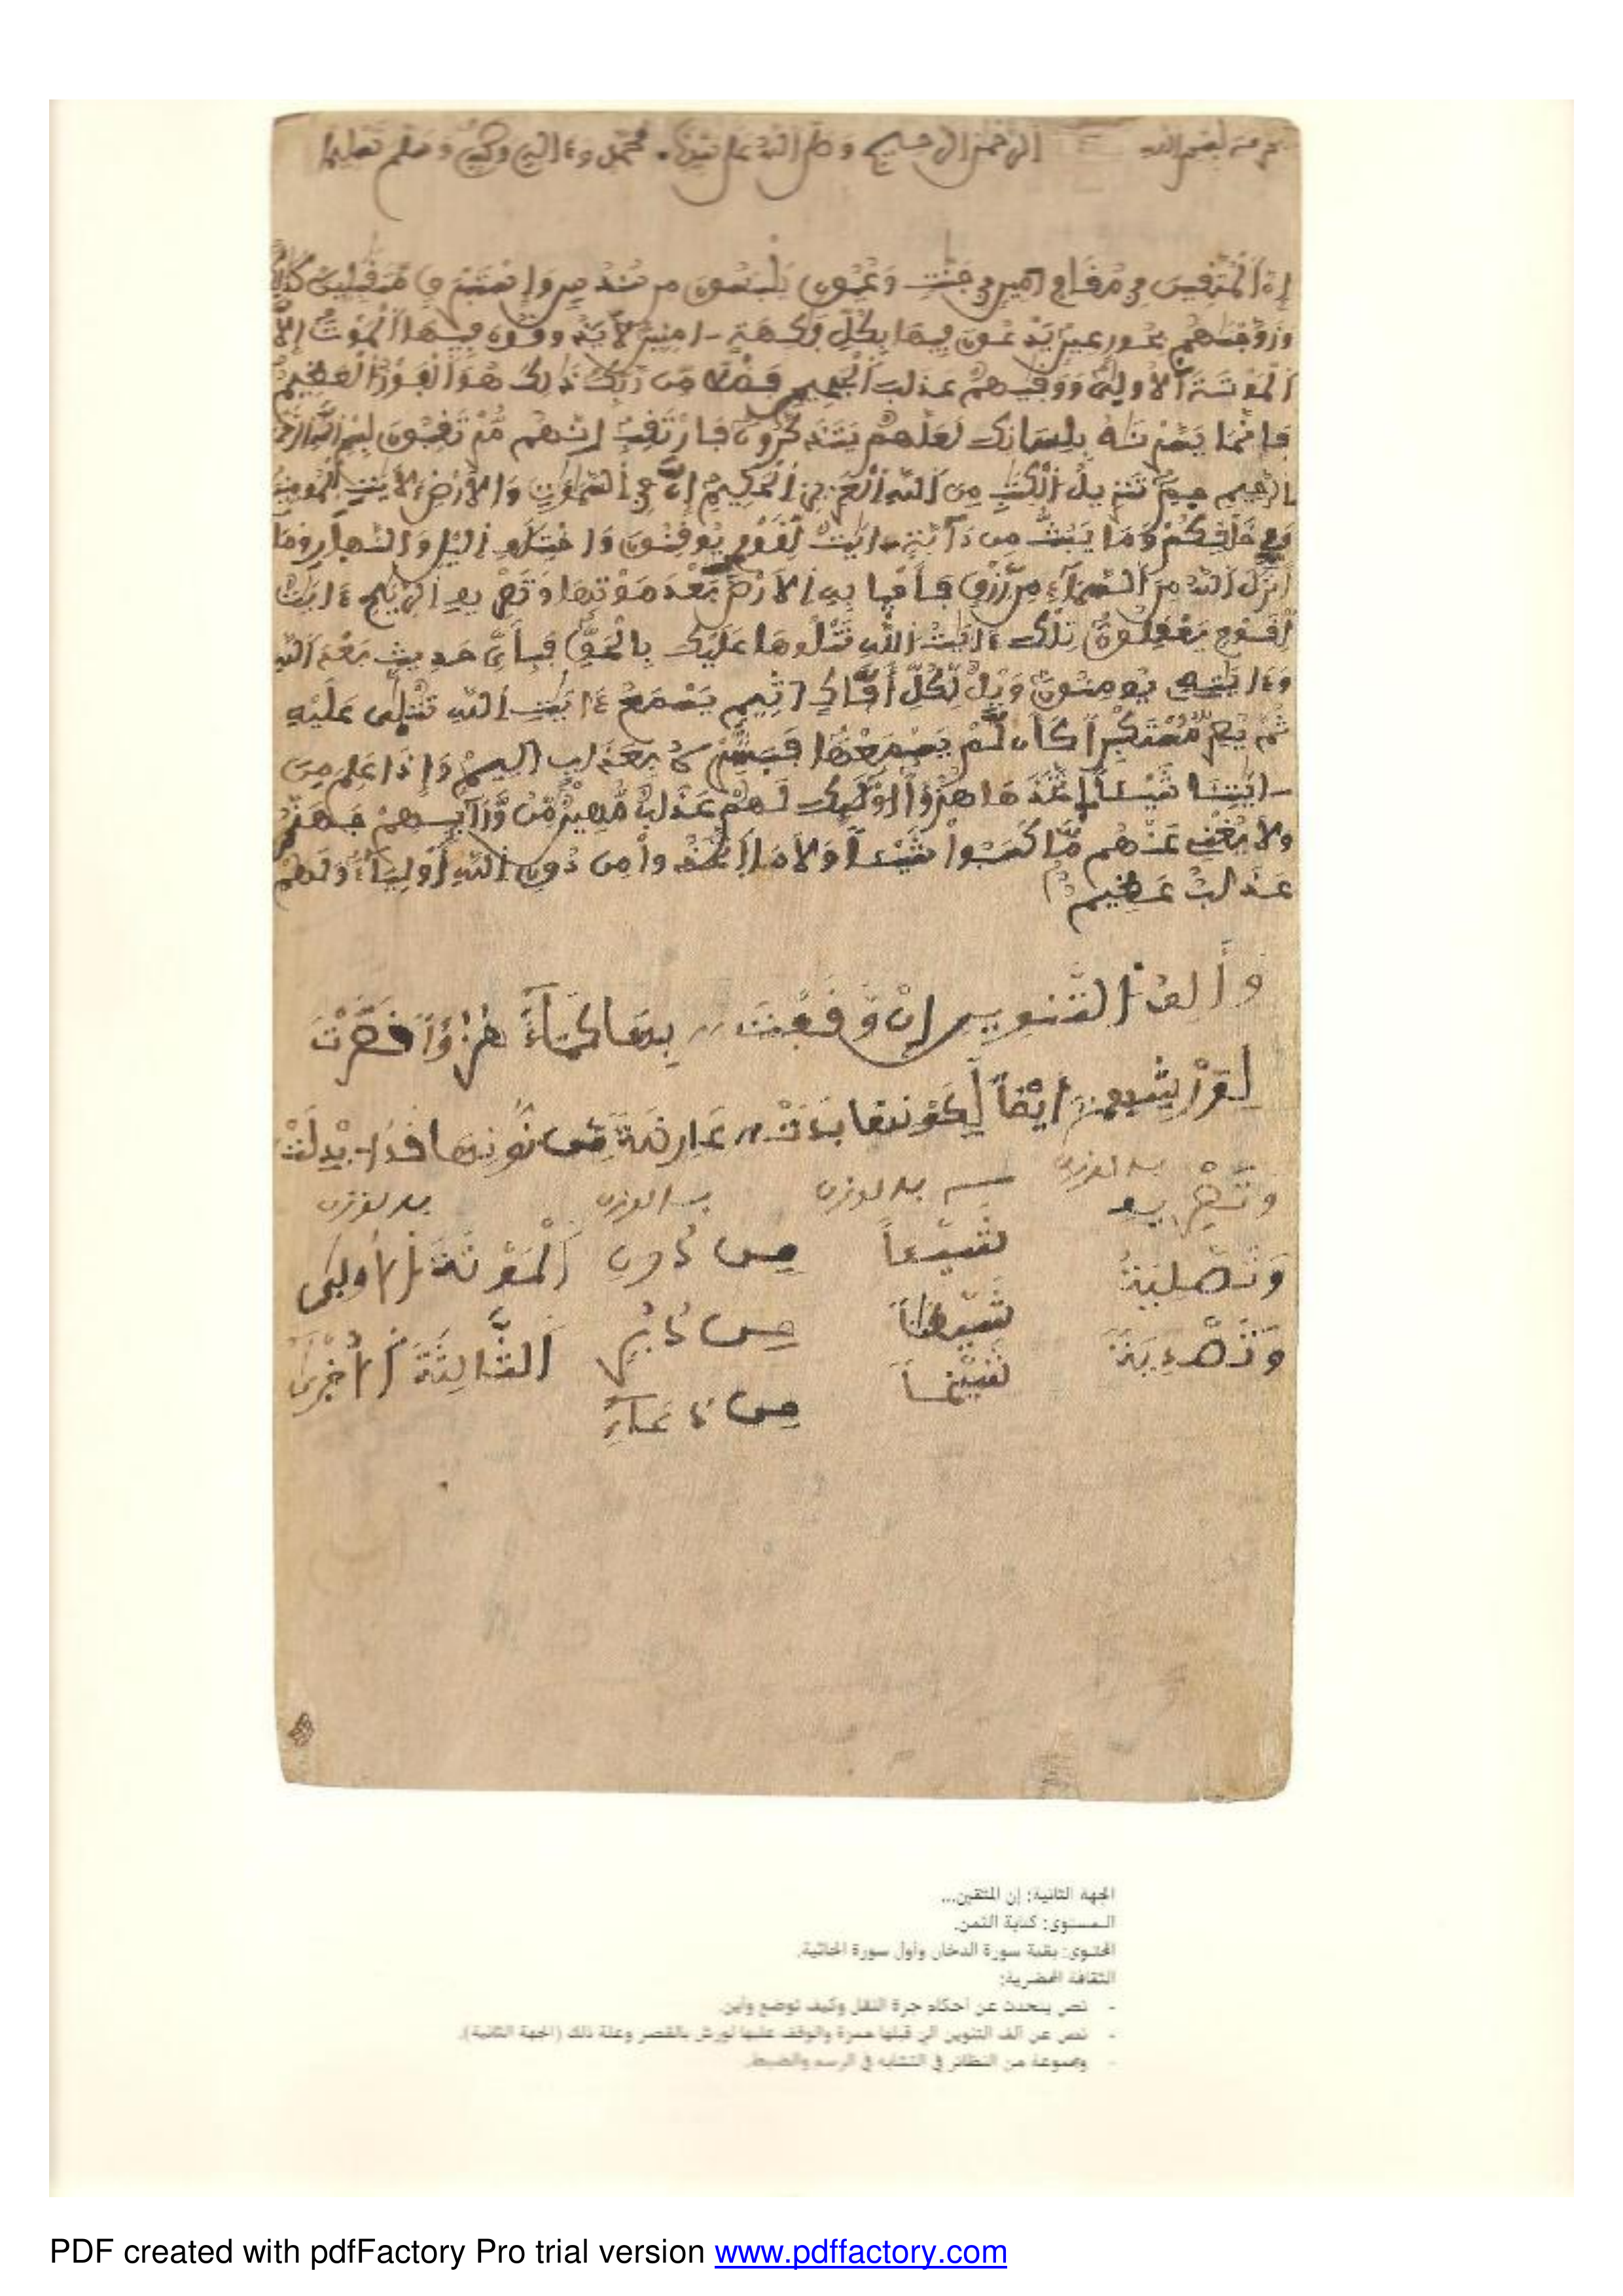 الرحمن الرحيم وصلى الله على سيدنا محمد وءاله وصحبه وسلم تسليما
إن المتقين في مقام امين في جنت وعيون يلبسون من سندس وإستبرق متقبلين كذلك
وزوجنهم بحور عين يدعون فيها بكل فكهة امنين لا يذوقون فيها الموت إلا
الموتة الاولى ووقيهم عذاب الجحيم فضلا من ربك ذلك هو الفوز العظيم
فإنما يسرنه بلسانك لعلهم يتذكرون فارتقب إنهم مرتقبون بسم الله الرحمن
الرحيم حم تنزيل الكتب من الله العزيز الحكيم إن في السموت والارض لأيت للمومنين
وفي خلقكم وما يبث من دابة ايت لقوم يوقنون واختلف اليل والنهار وما
أنزل الله من السماء من رزق فأحيا به الارض بعد موتها وتصريف الريح ءايت
لقوم يعقلون تلك ءايت الله نتلوها عليك بالحق فبأي حديث بعد الله
وءايته يومنون ويل لكل أفاك اثيم يسمع ءايت الله تتلى عليه
ثم يصر مستكبرا كأن لم يسمعها فبشره بعذاب اليم وإذا علم من
ايتنا شيئا اتخذها هزؤا اولئك لهم عذاب مهين من ورائهم جهنم
ولا يغني عنهم ما كسبوا شيئا ولا ما اتخذوا من دون الله أولياء ولهم
عذاب عظيم
وألف التنوين إن وقفت بها كماء هزؤا قصرت
لورشهم ايضا لكونها بدت عارضة من نونها قد ابدلت
شيئا من دون الموتة الاولى
شيطنا الثالثة الاخرى
الجهة الثانية: إن المتقين...
المستوى: كتابة الثمن.
المحتوى: بقية سورة الدخان وأول سورة الجاثية.
الثقافة المحضرية:
- نص يتحدث عن أحكام جرة النقل وكيف توضع وأين.
- نص عن ألف التنوين التي قبلها همزة والوقف عليها لورش بالقصر وعلة ذلك (الجهة الثانية).
- ومجموعة من النظائر في التشابه في الرسم والضبط.
PDF created with pdfFactory Pro trial version www.pdffactory.com